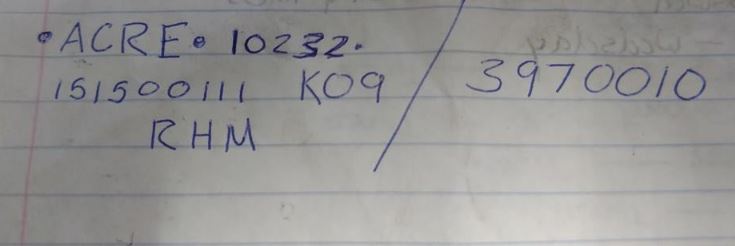 • ACRE • 10232.
151500111 K09 / 3970010
RHM